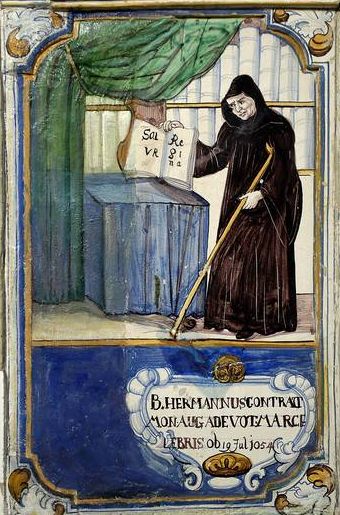 Sal
VR
Re
gi
na
B.HERMANNUSCONTRAT
MON.AUGADEVOT:MAR.CE
LEBRIS Ob 19 Jul 1054